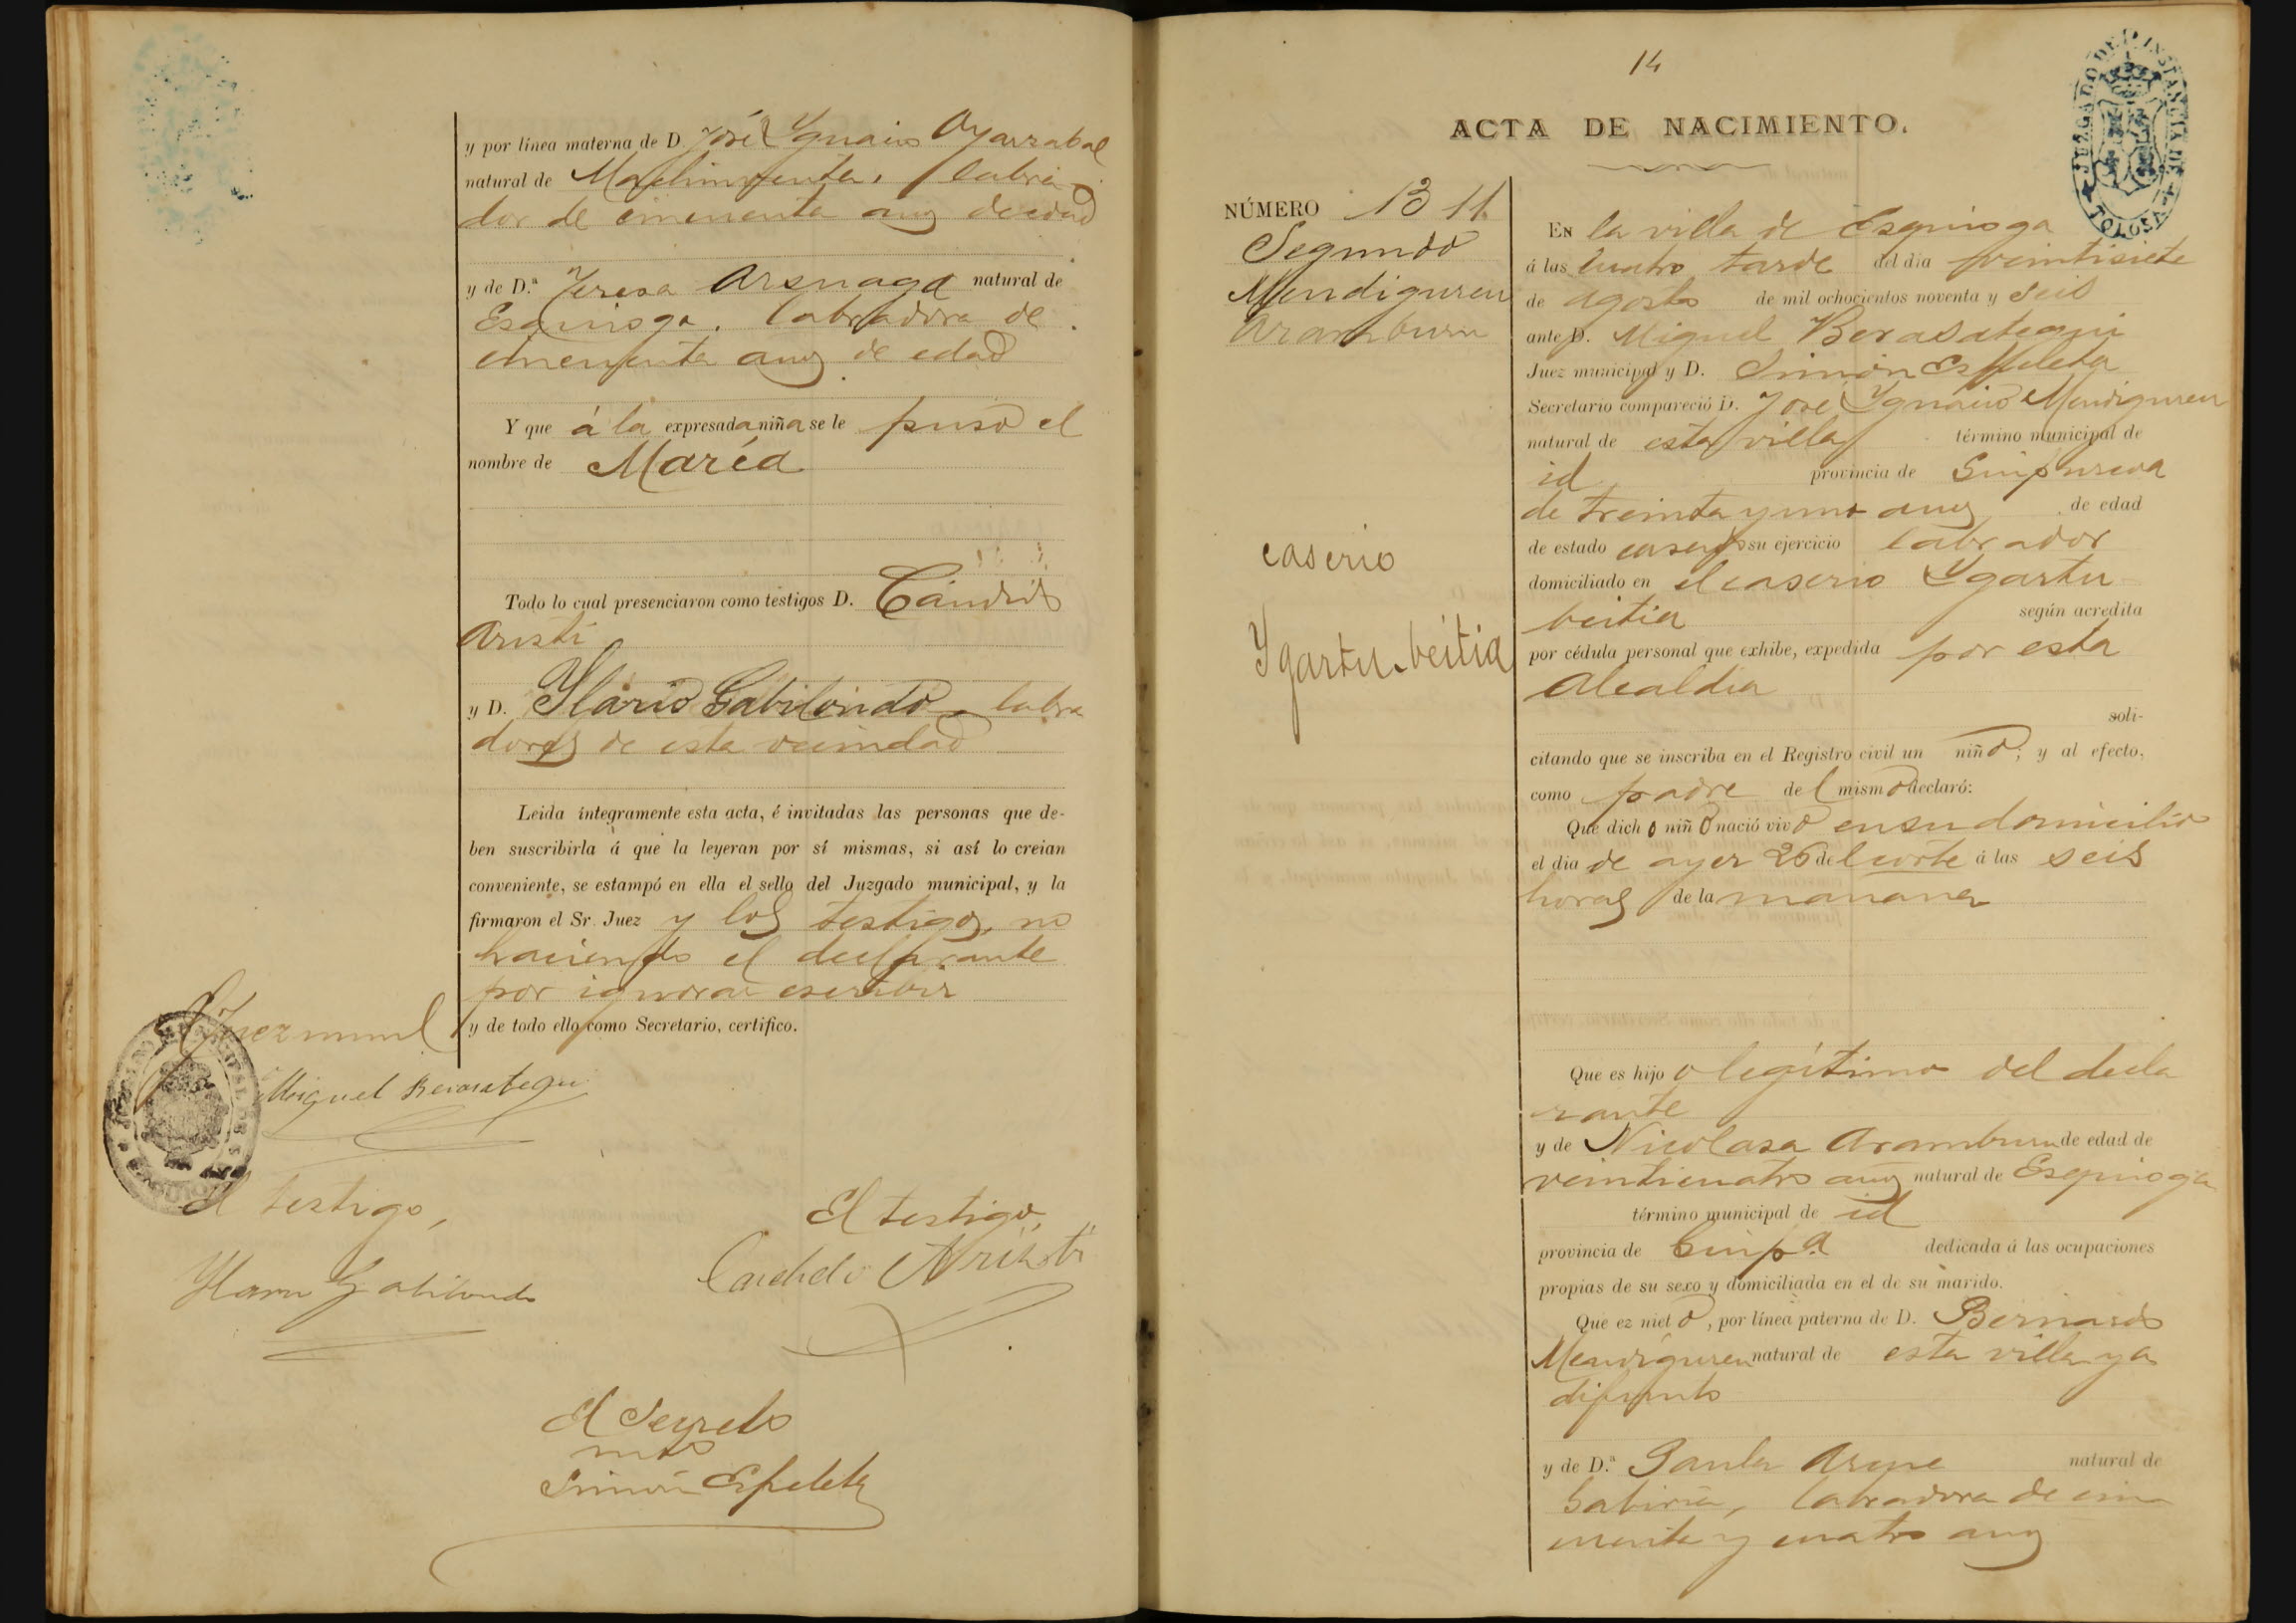 y por línea materna de D. José Ygnacio Oyarzabal
natural de labra-
dor de cincuenta años de edad
y de D.ª Teresa Arsuaga natural de
Esquioga, labradora de
cincuenta años de edad
Y que á la expresada niña se le puso el
nombre de María
Todo lo cual presenciaron como testigos D. Cándido
Aristi
y D. Ylario Gabilondo labra
dores de esta vecindad
Leida íntegramente esta acta, é invitadas las personas que de-
ben suscribirla á que la leyeran por sí mismas, si así lo creian
conveniente, se estampó en ella el sello del Juzgado municipal, y la
firmaron el Sr. Juez y los testigos, no
haciendo el declarante
por ignorar escribir
y de todo ello como Secretario, certifico.
Juez munl
Miguel Berasategui
El testigo,
Ylario Gabilondo
El testigo,
Candido Aristi
El Secreta
rio
Simón Ezpeleta
14
JUZGADO DE 1ª INSTANCIA DE TOLOSA
ACTA DE NACIMIENTO.
NÚMERO 13 11.
Segundo
Mendiguren
Aramburu
caserio
Ygartu-beitia
En la villa de Esquioga
á las cuatro tarde del dia veintisiete
de agosto de mil ochocientos noventa y seis
ante D. Miguel Berasategui
Juez municipal y D. Simón Ezpeleta
Secretario compareció D. José Ygnacio Mendiguren
natural de esta villa término municipal de
id provincia de Guipuzcoa
de treinta y uno años de edad
de estado casado su ejercicio labrador
domiciliado en el caserio Ygartu-
beitia según acredita
por cédula personal que exhibe, expedida por esta
Alcaldia
soli-
citando que se inscriba en el Registro civil un niño; y al efecto,
como padre del mismo declaró:
Que dicho niño nació vivo en su domicilio
el dia de ayer 26 del corte á las seis
horas de la mañana
Que es hijo legítimo del decla
rante
y de Nicolasa Aramburu de edad de
veinticuatro años natural de Esquioga
término municipal de id
provincia de Guip.ª dedicada á las ocupaciones
propias de su sexo y domiciliada en el de su marido.
Que ez nieto, por línea paterna de D. Bernardo
Mendiguren natural de esta villa ya
difunto
y de D.ª Paula natural de
Gabiria, labradora de cin
cuenta y cuatro años